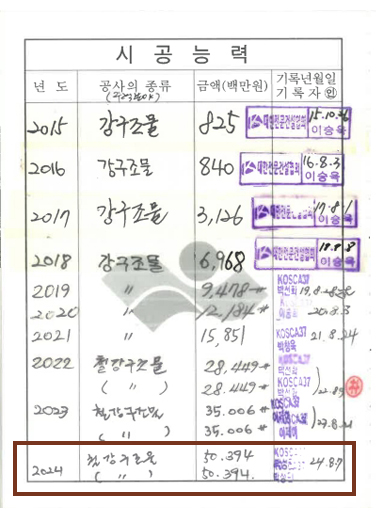 시 공 능 력
년 도 공사의 종류 금액(백만원) 기록년월일
기 록 자 ㊞
2015 강구조물 825 대한전문건설협회 15.10.26 이승욱
2016 강구조물 840 대한전문건설협회 16.8.3 이승욱
2017 강구조물 3,126 대한전문건설협회 17.8.1 이승욱
2018 강구조물 6,968 대한전문건설협회 18.8.8 이승욱
2019 〃 9,478 KOSCA37
2020 〃 12,184 20.8.3
2021 〃 15,851 KOSCA37 21.8.24
2022 철강구조물 28,449
( 〃 ) 28.449 KOSCA37
2023 철강구조물 35.006 KOSCA37
( 〃 ) 35.006
2024 철강구조물 50.394 24.8.7
( 〃 ) 50.394.